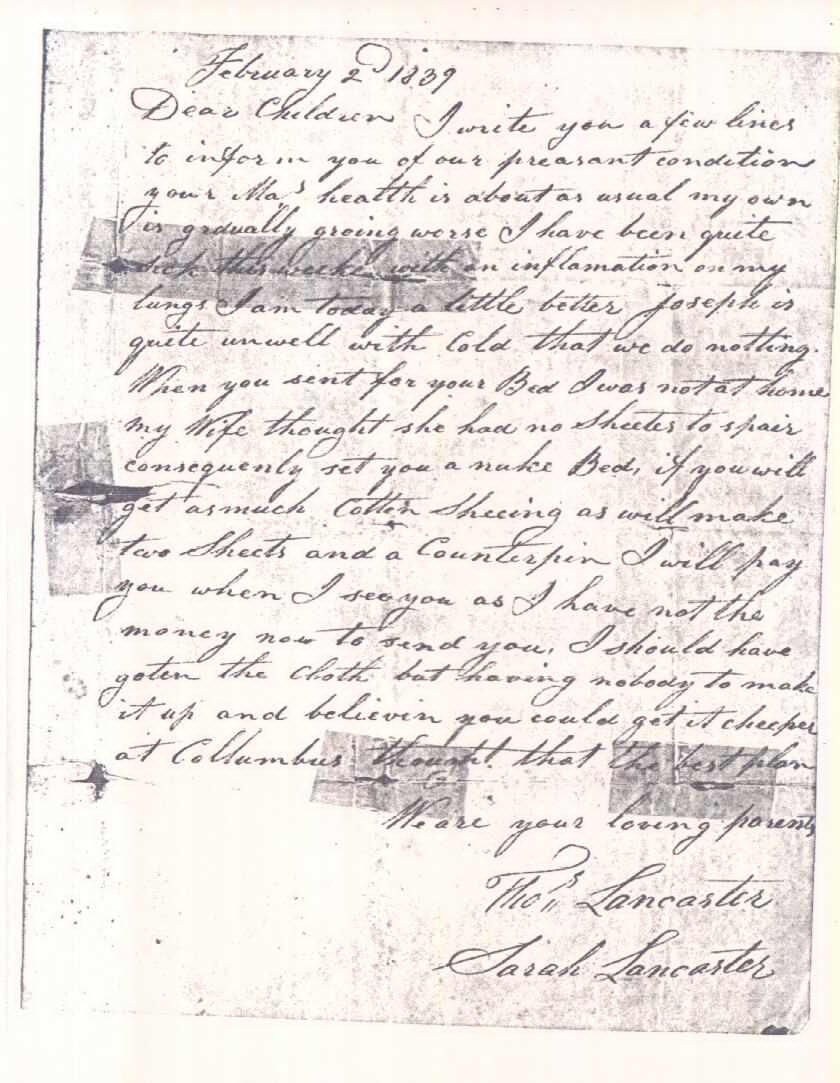 February 2d 1839
Dear Children I write you a few lines
to inform you of our preasant condition
your Ma's health is about as usual my own
is gradually groing worse I have been quite
sick this weeke with an inflamation on my
lungs I am today a little better Joseph is
quite unwell with Cold that we do notting.
When you sent for your Bed I was not at home
my Wife thought she had no Sheetes to spair
consequenly set you a nuke Bed, if you will
get as much Cotten Sheeing as will make
two Sheets and a Counterpin I will pay
you when I see you as I have not the
money now to send you, I should have
goten the Cloth but having nobody to make
it up and believin you could get it cheeper
at Collumbus thought that the best plan
We are your loving parents
Thos Lancaster
Sarah Lancaster